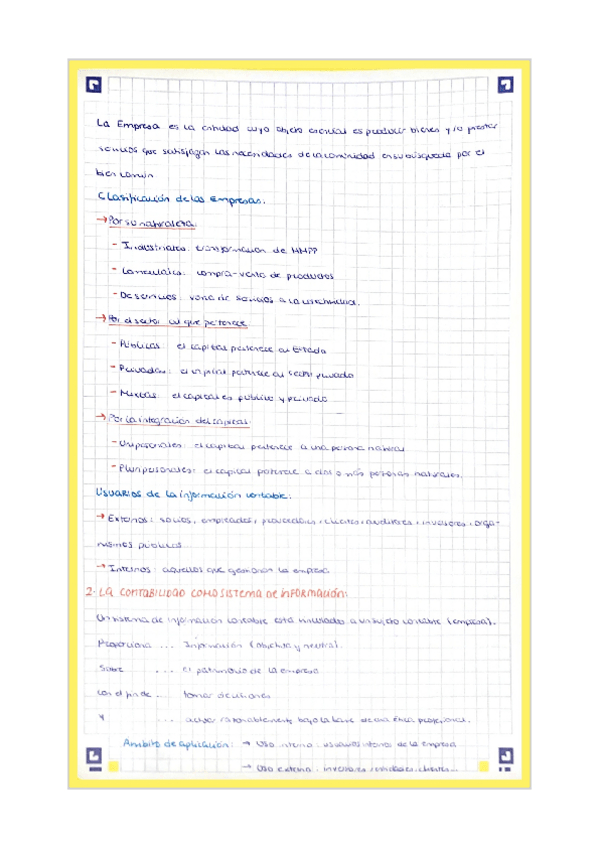 La Empresa es la entidad cuyo objeto esencial es producir bienes y/o prestar
servicios que satisfagan las necesidades de la comunidad en su búsqueda por el
bien común
Clasificación de las empresas:
→ Por su naturaleza:
- Industriales: transformación de MMPP
- Comerciales: compra-venta de productos
- De servicios: venta de servicios a la
→ Por el sector al que pertenece
- Públicas: el capital pertenece al Estado
- Privadas: el capital pertenece al sector privado
- Mixtas: el capital es público y privado
→ Por la integración del capital:
- Unipersonales: el capital pertenece a una persona natural
- Pluripersonales: el capital pertenece a dos o más personas naturales.
Usuarios de la información contable:
→ Externos: socios, empleados, proveedores, clientes, auditores, inversores, orga-
nismos públicos
→ Internos: aquellos que gestionan la empresa
2- LA CONTABILIDAD COMO SISTEMA DE INFORMACIÓN:
Un sistema de información contable está vinculado a un sujeto contable (empresa).
Proporciona ... Información (objetiva y neutral).
Sobre ... el patrimonio de la empresa
con el fin de ... tomar decisiones
Y ... actuar razonablemente bajo la base de una ética profesional.
Ámbito de aplicación: → Uso interno: usuarios internos de la empresa
→ Uso externo: inversores, entidades, clientes...